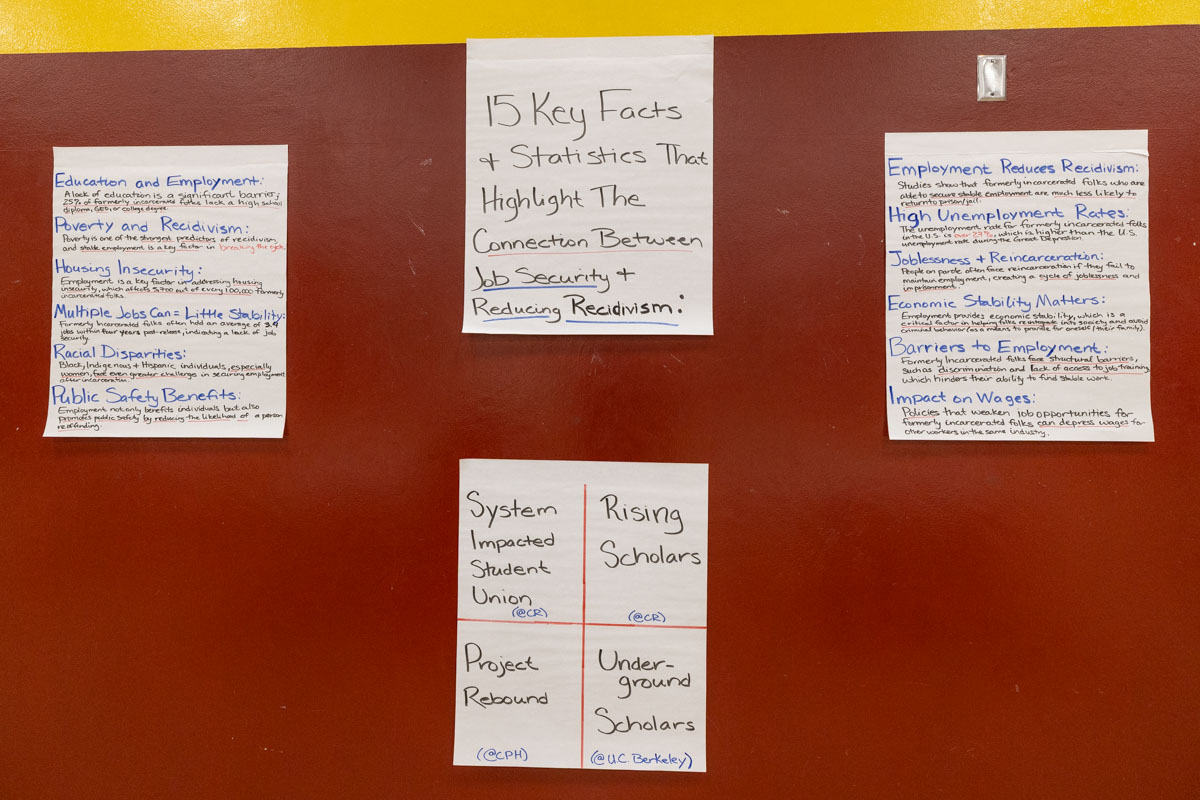 15 Key Facts
+ Statistics That
Highlight The
Connection Between
Job Security +
Reducing Recidivism:
Education and Employment:
A lack of education is a significant barrier;
25% of formerly incarcerated folks lack a high school
diploma, GED, or college degree.
Poverty and Recidivism:
Poverty is one of the strongest predictors of recidivism,
and stable employment is a key factor in breaking the cycle.
Housing Insecurity:
Employment is a key factor in addressing housing
insecurity, which affects 5,700 out of every 100,000 formerly
incarcerated folks.
Multiple Jobs Can = Little Stability:
Formerly incarcerated folks often hold an average of 3.4
jobs within four years post-release, indicating a lack of job
security.
Racial Disparities:
Black, Indigenous + Hispanic individuals, especially
women, face even greater challenges in securing employment
after incarceration.
Public Safety Benefits:
Employment not only benefits individuals but also
promotes public safety by reducing the likelihood of a person
reoffending.
Employment Reduces Recidivism:
Studies show that formerly incarcerated folks who are
able to secure stable employment are much less likely to
return to prison/jail.
High Unemployment Rates:
The unemployment rate for formerly incarcerated folks
in the U.S. is over 27%, which is higher than the U.S.
unemployment rate during the Great Depression.
Joblessness + Reincarceration:
People on parole often face reincarceration if they fail to
maintain employment, creating a cycle of joblessness and
imprisonment.
Economic Stability Matters:
Employment provides economic stability, which is a
critical factor in helping folks reintegrate into society and avoid
criminal behavior (as a means to provide for oneself/their family).
Barriers to Employment:
Formerly Incarcerated folks face structural barriers,
such as discrimination and lack of access to job training,
which hinders their ability to find stable work.
Impact on Wages:
Policies that weaken job opportunities for
formerly incarcerated folks can depress wages for
other workers in the same industry.
System
Impacted
Student
Union
(@CR)
Rising
Scholars
(@CR)
Project
Rebound
(@CPH)
Under-
ground
Scholars
(@U.C. Berkeley)